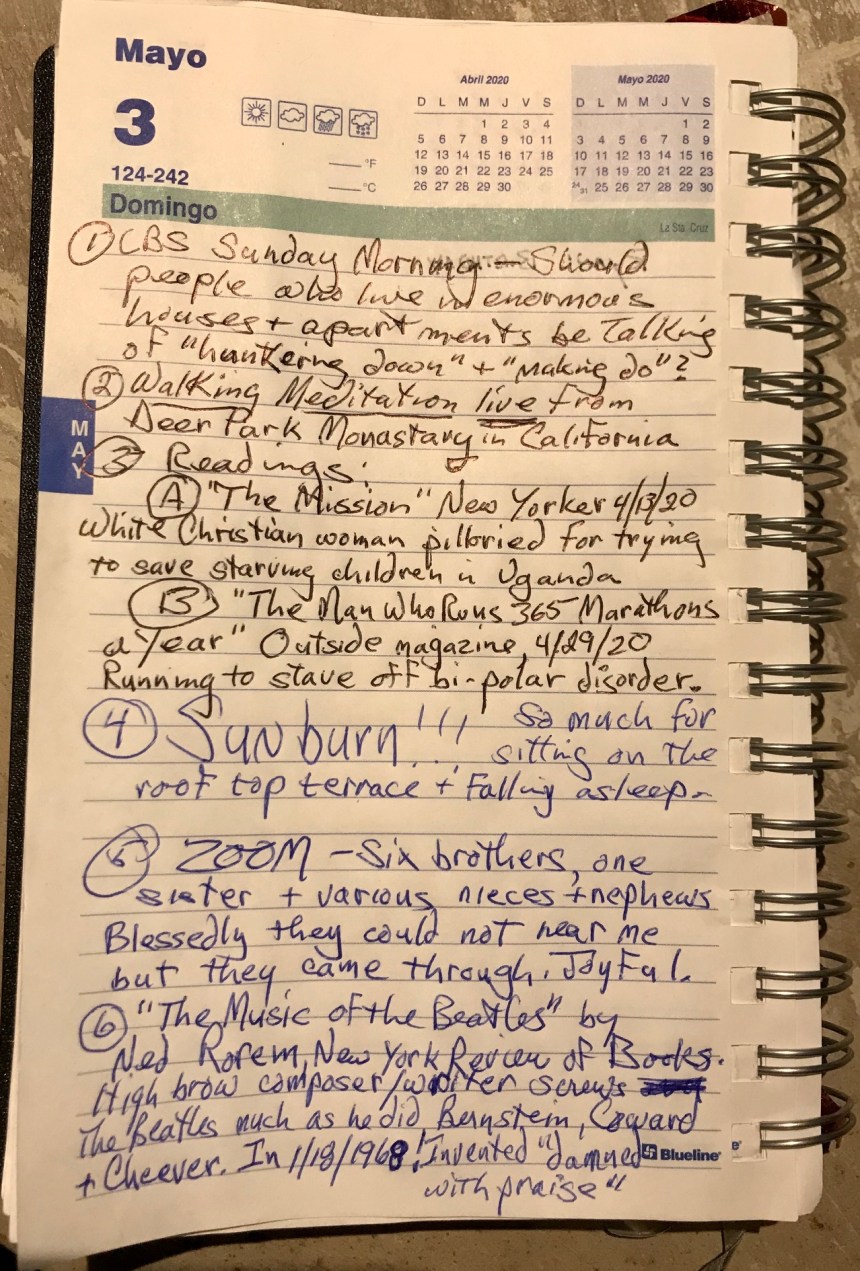 Mayo
3
124-242
Domingo
°F
°C
Abril 2020
D L M M J V S
1 2 3 4
5 6 7 8 9 10 11
12 13 14 15 16 17 18
19 20 21 22 23 24 25
26 27 28 29 30
Mayo 2020
D L M M J V S
1 2
3 4 5 6 7 8 9
10 11 12 13 14 15 16
17 18 19 20 21 22 23
24/31 25 26 27 28 29 30
La Sta. Cruz
MAY
① CBS Sunday Morning - Should
people who live in enormous
houses + apartments be Talking
of "hunkering down" + "making do"?
② Walking Meditation live from
Deer Park Monastary in California
③ Readings:
Ⓐ "The Mission" New Yorker 4/13/20
White Christian woman pilloried for trying
to save starving children in Uganda
Ⓑ "The Man Who Runs 365 Marathons
a Year" Outside magazine, 4/29/20
Running to stave off bi-polar disorder.
④ Sunburn!!! So much for
sitting on The
roof top terrace + Falling asleep.
⑤ ZOOM - Six brothers, one
sister + various nieces + nephews
Blessedly they could not hear me
but they came through. Joyful.
⑥ "The Music of the Beatles" by
Ned Rorem, New York Review of Books.
High brow composer/writer screws
The Beatles much as he did Bernstein, Coward
+ Cheever. In 1/18/1968! Invented "damned
with praise"
Blueline®